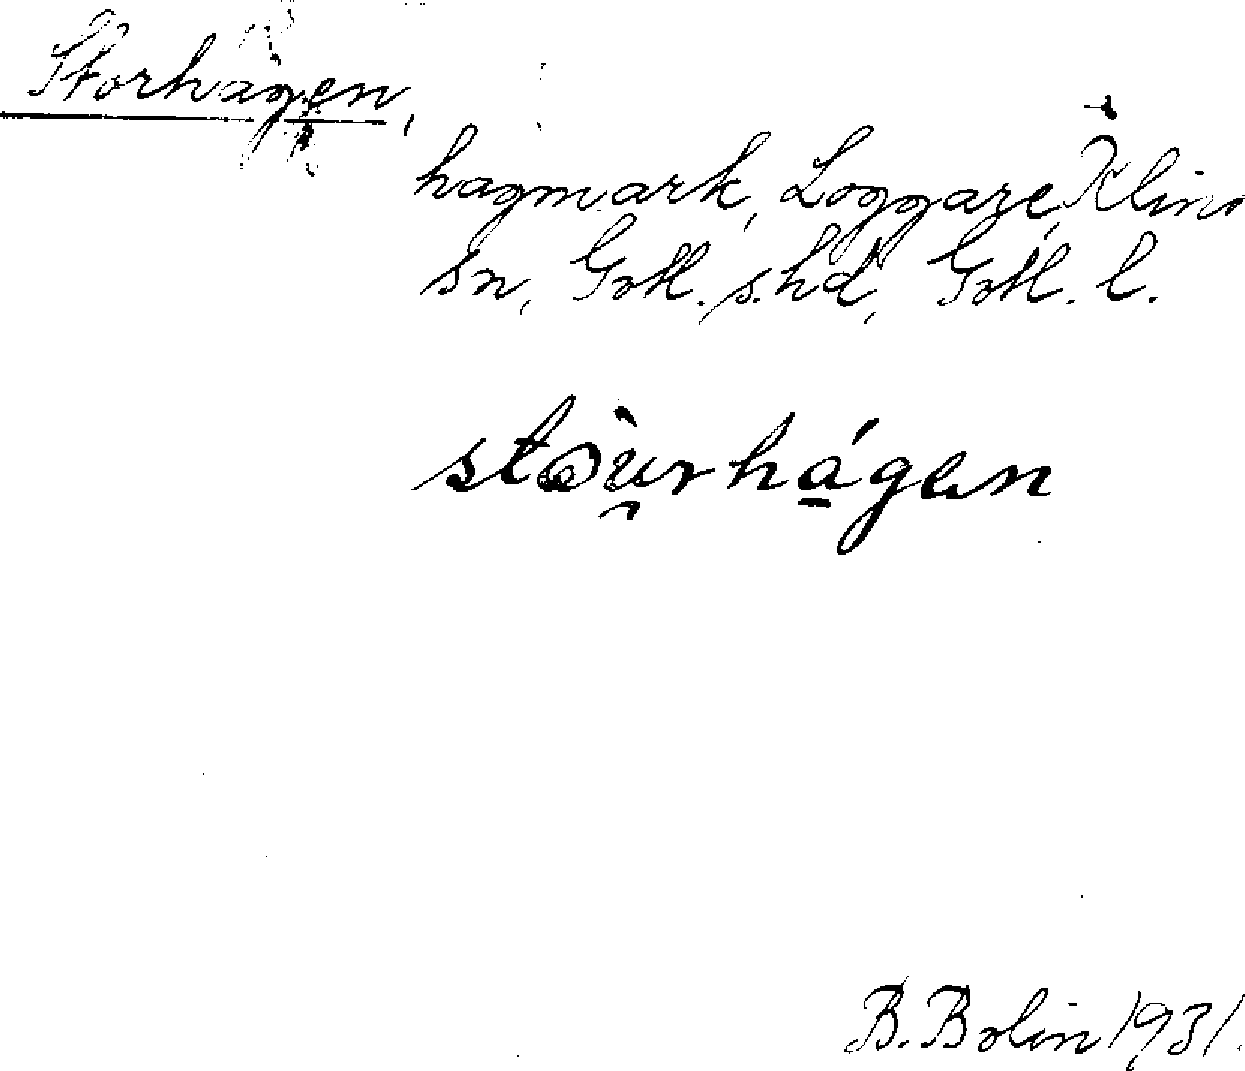 Storhagen,
hagmark, Loggare, Klinte
sn, Gotl. s. hd, Gotl. l.
stòu̯rhá̱gen
B. Bolin 1931.